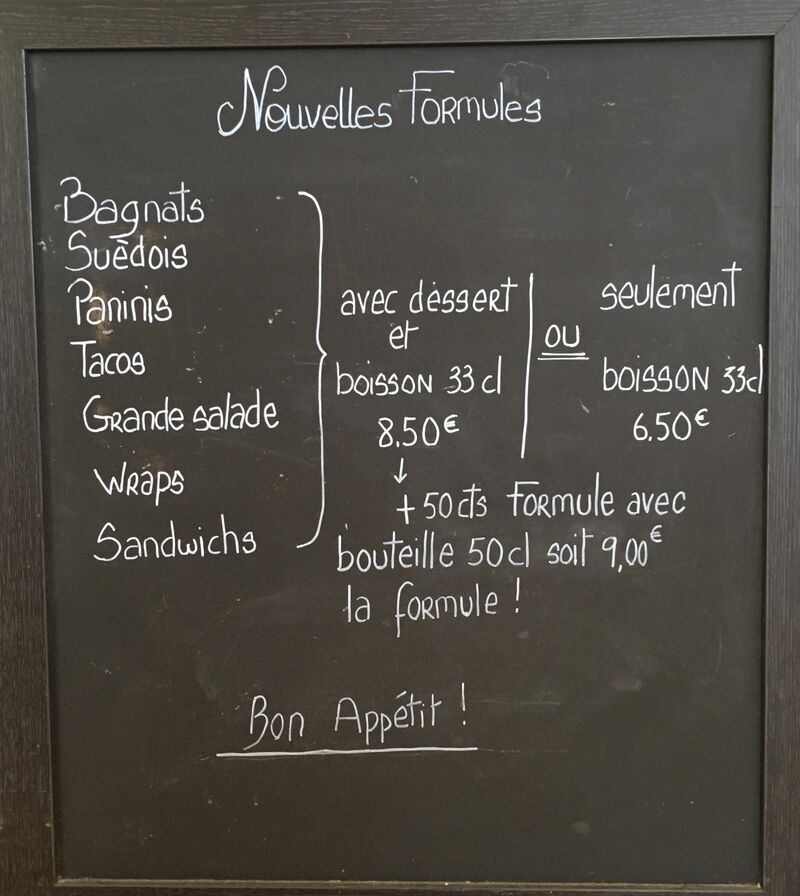 Nouvelles Formules
Bagnats
Suèdois
Paninis
Tacos
Grande salade
Wraps
Sandwichs
avec dèssert
et
boisson 33 cl
8.50€
ou
seulement
boisson 33cl
6.50€
↓
+ 50 cts formule avec
bouteille 50 cl soit 9,00€
la formule !
Bon Appétit !